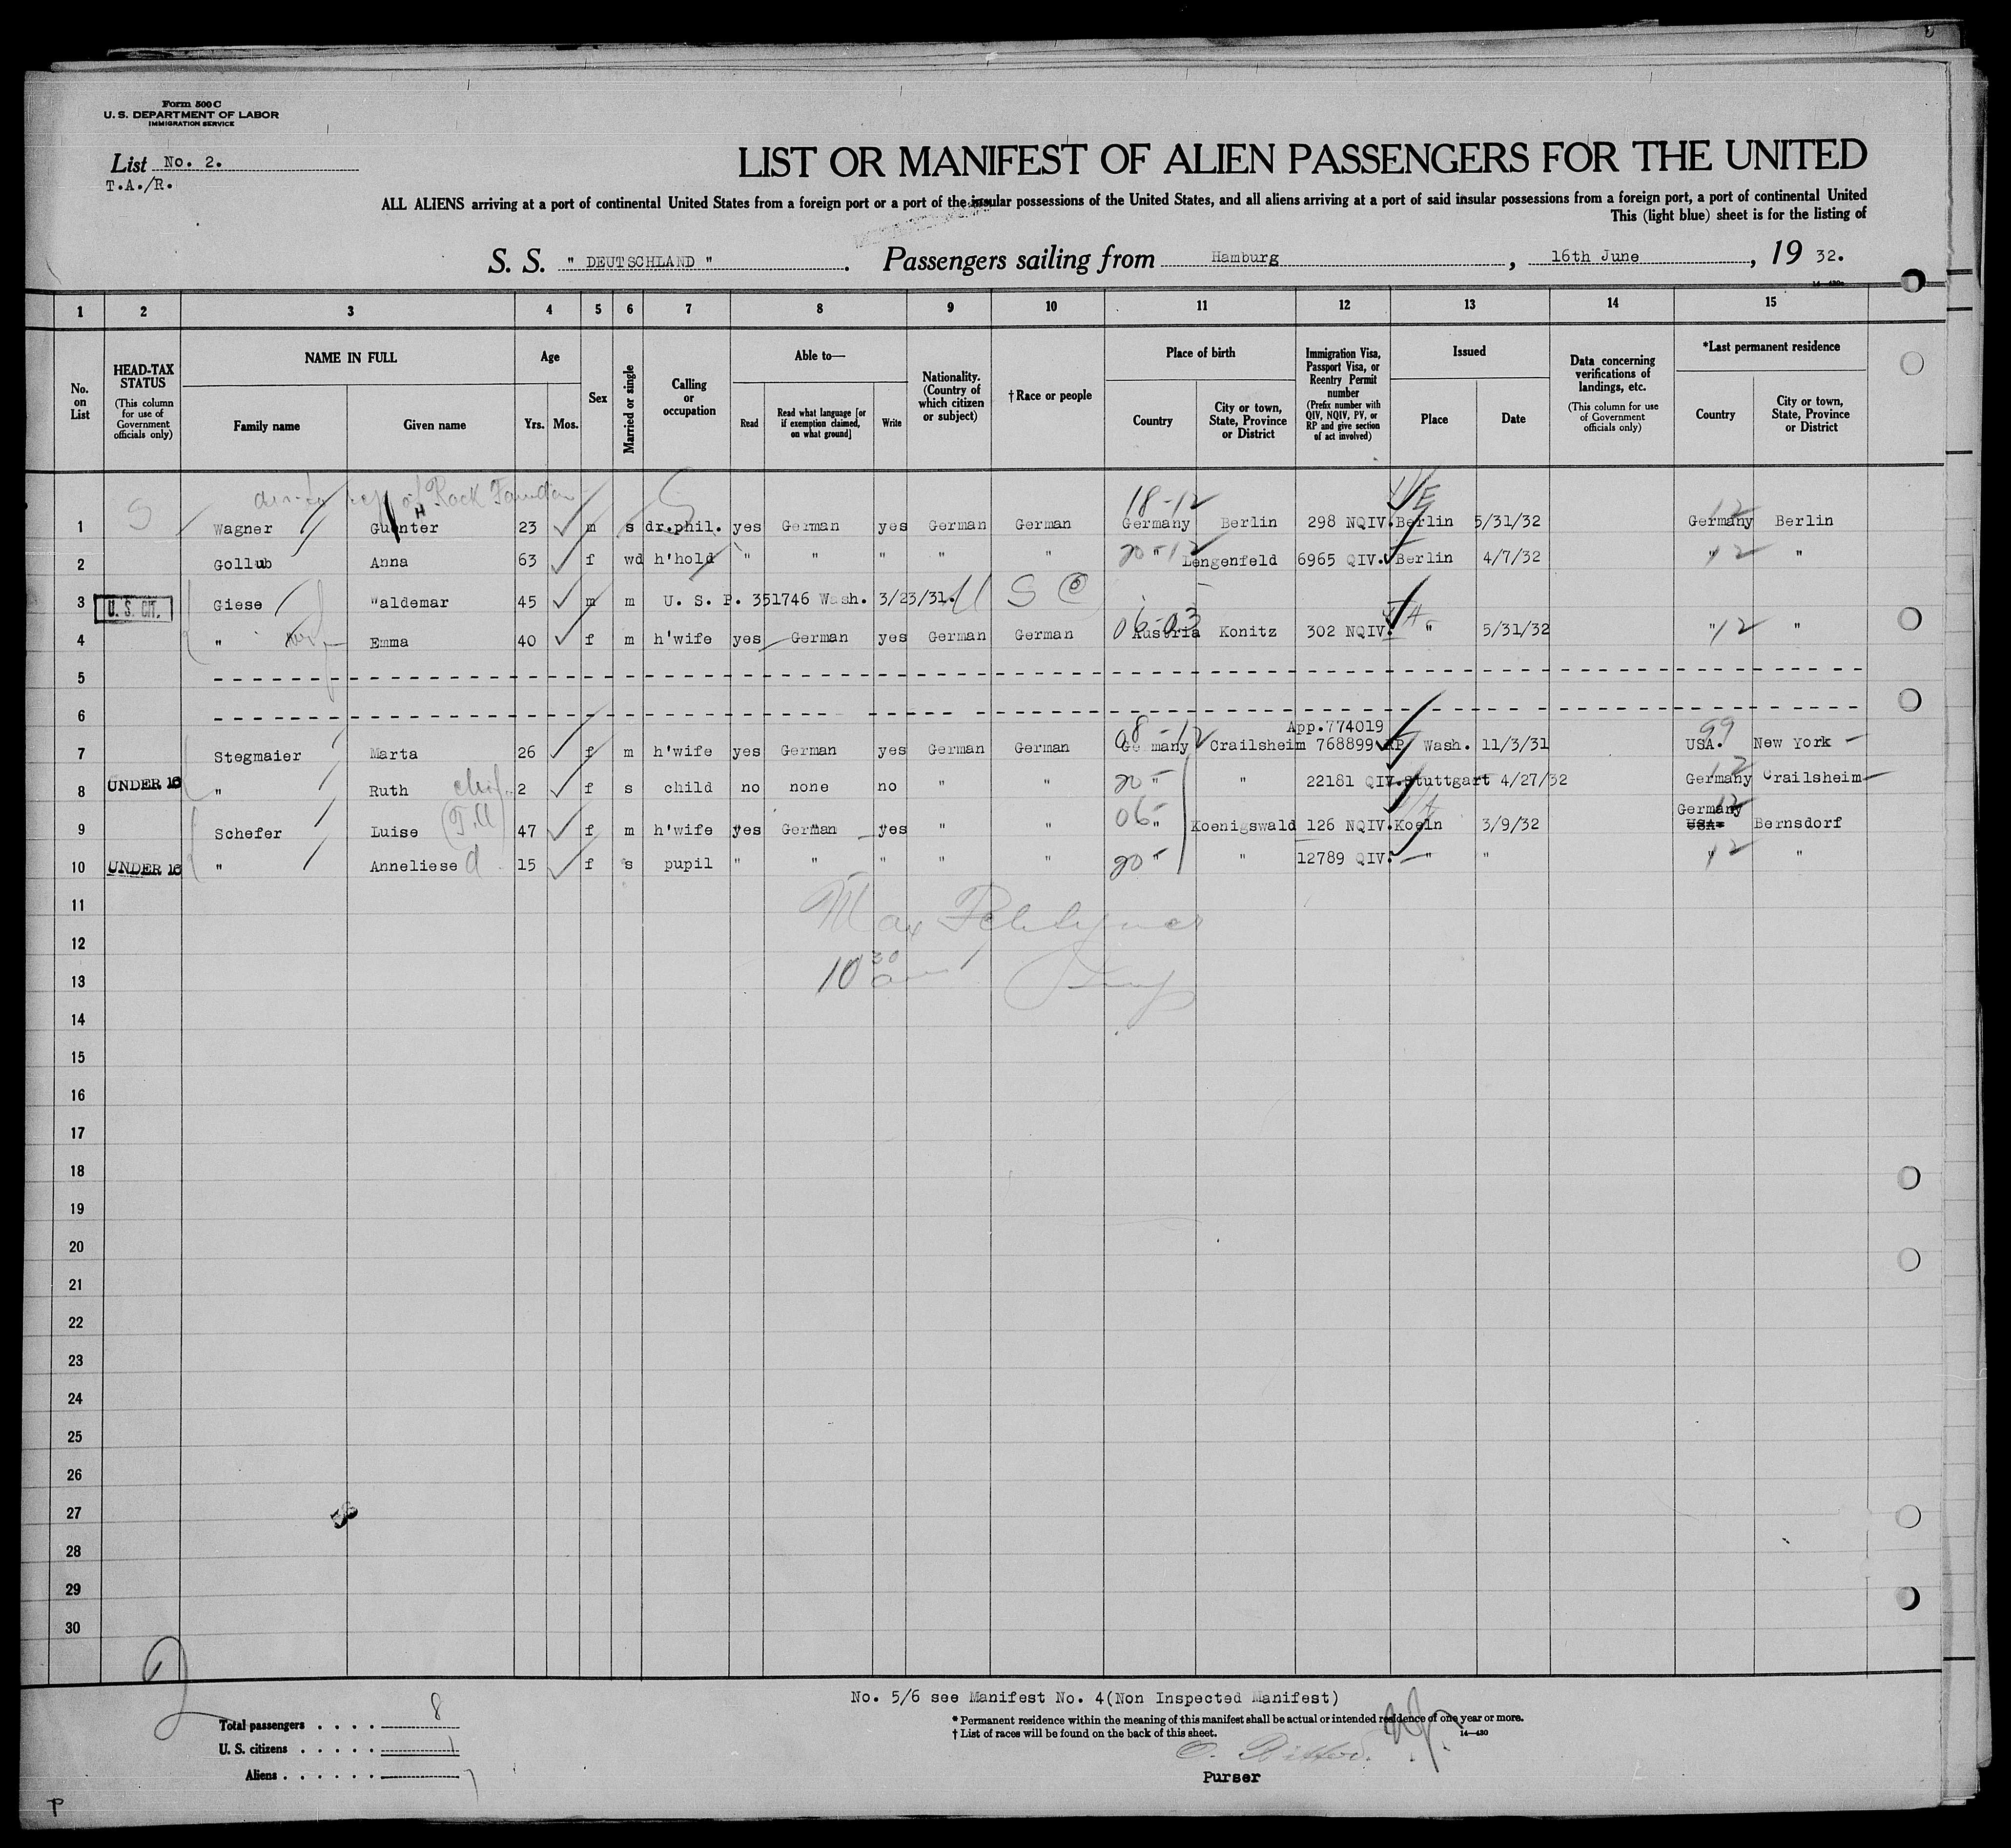 Form 500 C
U. S. DEPARTMENT OF LABOR
IMMIGRATION SERVICE
List No. 2.
T.A./R.
LIST OR MANIFEST OF ALIEN PASSENGERS FOR THE UNITED
ALL ALIENS arriving at a port of continental United States from a foreign port or a port of the insular possessions of the United States, and all aliens arriving at a port of said insular possessions from a foreign port, a port of continental United
This (light blue) sheet is for the listing of
S. S. " DEUTSCHLAND ". Passengers sailing from Hamburg, 16th June, 19 32.
14—430a
1 2 3 4 5 6 7 8 9 10 11 12 13 14 15
No. on List
HEAD-TAX STATUS
(This column for use of Government officials only)
NAME IN FULL
Family name Given name
Age
Yrs. Mos.
Sex
Married or single
Calling or occupation
Able to—
Read Read what language [or if exemption claimed, on what ground] Write
Nationality. (Country of which citizen or subject)
†Race or people
Place of birth
Country City or town, State, Province or District
Immigration Visa, Passport Visa, or Reentry Permit number
(Prefix number with QIV, NQIV, PV, or RP and give section of act involved)
Issued
Place Date
Data concerning verifications of landings, etc.
(This column for use of Government officials only)
*Last permanent residence
Country City or town, State, Province or District
S Rock 18-12 12
1 Wagner Gunter H 23 m s dr.phil. yes German yes German German Germany Berlin 298 NQIV. Berlin 5/31/32 Germany Berlin
2 Gollub Anna 63 f wd h'hold " " " " " 20 " 12 Lengenfeld 6965 QIV. Berlin 4/7/32 " 12 "
3 U. S. CIT. Giese "aldemar 45 m m U. S. P. 351746 Wash. 3/23/31. U S C
06-03
4 " Emma 40 f m h'wife yes German yes German German Austria Konitz 302 NQIV. " 5/31/32 " 12 "
5
6
App.774019
08-12 99
7 Stegmaier Marta 26 f m h'wife yes German yes German German Germany Crailsheim 768899 RP Wash. 11/3/31 USA. New York
8 UNDER 16 " Ruth child 2 f s child no none no " " 20 " " 22181 QIV. Stuttgart 4/27/32 Germany 12 Crailsheim
Germany 12
9 Schefer Luise 47 f m h'wife yes German yes " " 06 " Koenigswald 126 NQIV. Koeln 3/9/32 USA. Bernsdorf
10 UNDER 16 " Anneliese d 15 f s pupil " " " " " 20 " " 12789 QIV. " " " 12 "
11
Max
12
10 30
13
14
15
16
17
18
19
20
21
22
23
24
25
26
27
28
29
30
No. 5/6 see Manifest No. 4(Non Inspected Manifest)
Total passengers . . . . 8
U. S. citizens . . . . . 1
Aliens . . . . . . 7
* Permanent residence within the meaning of this manifest shall be actual or intended residence of one year or more.
† List of races will be found on the back of this sheet.
14—430
Purser
P